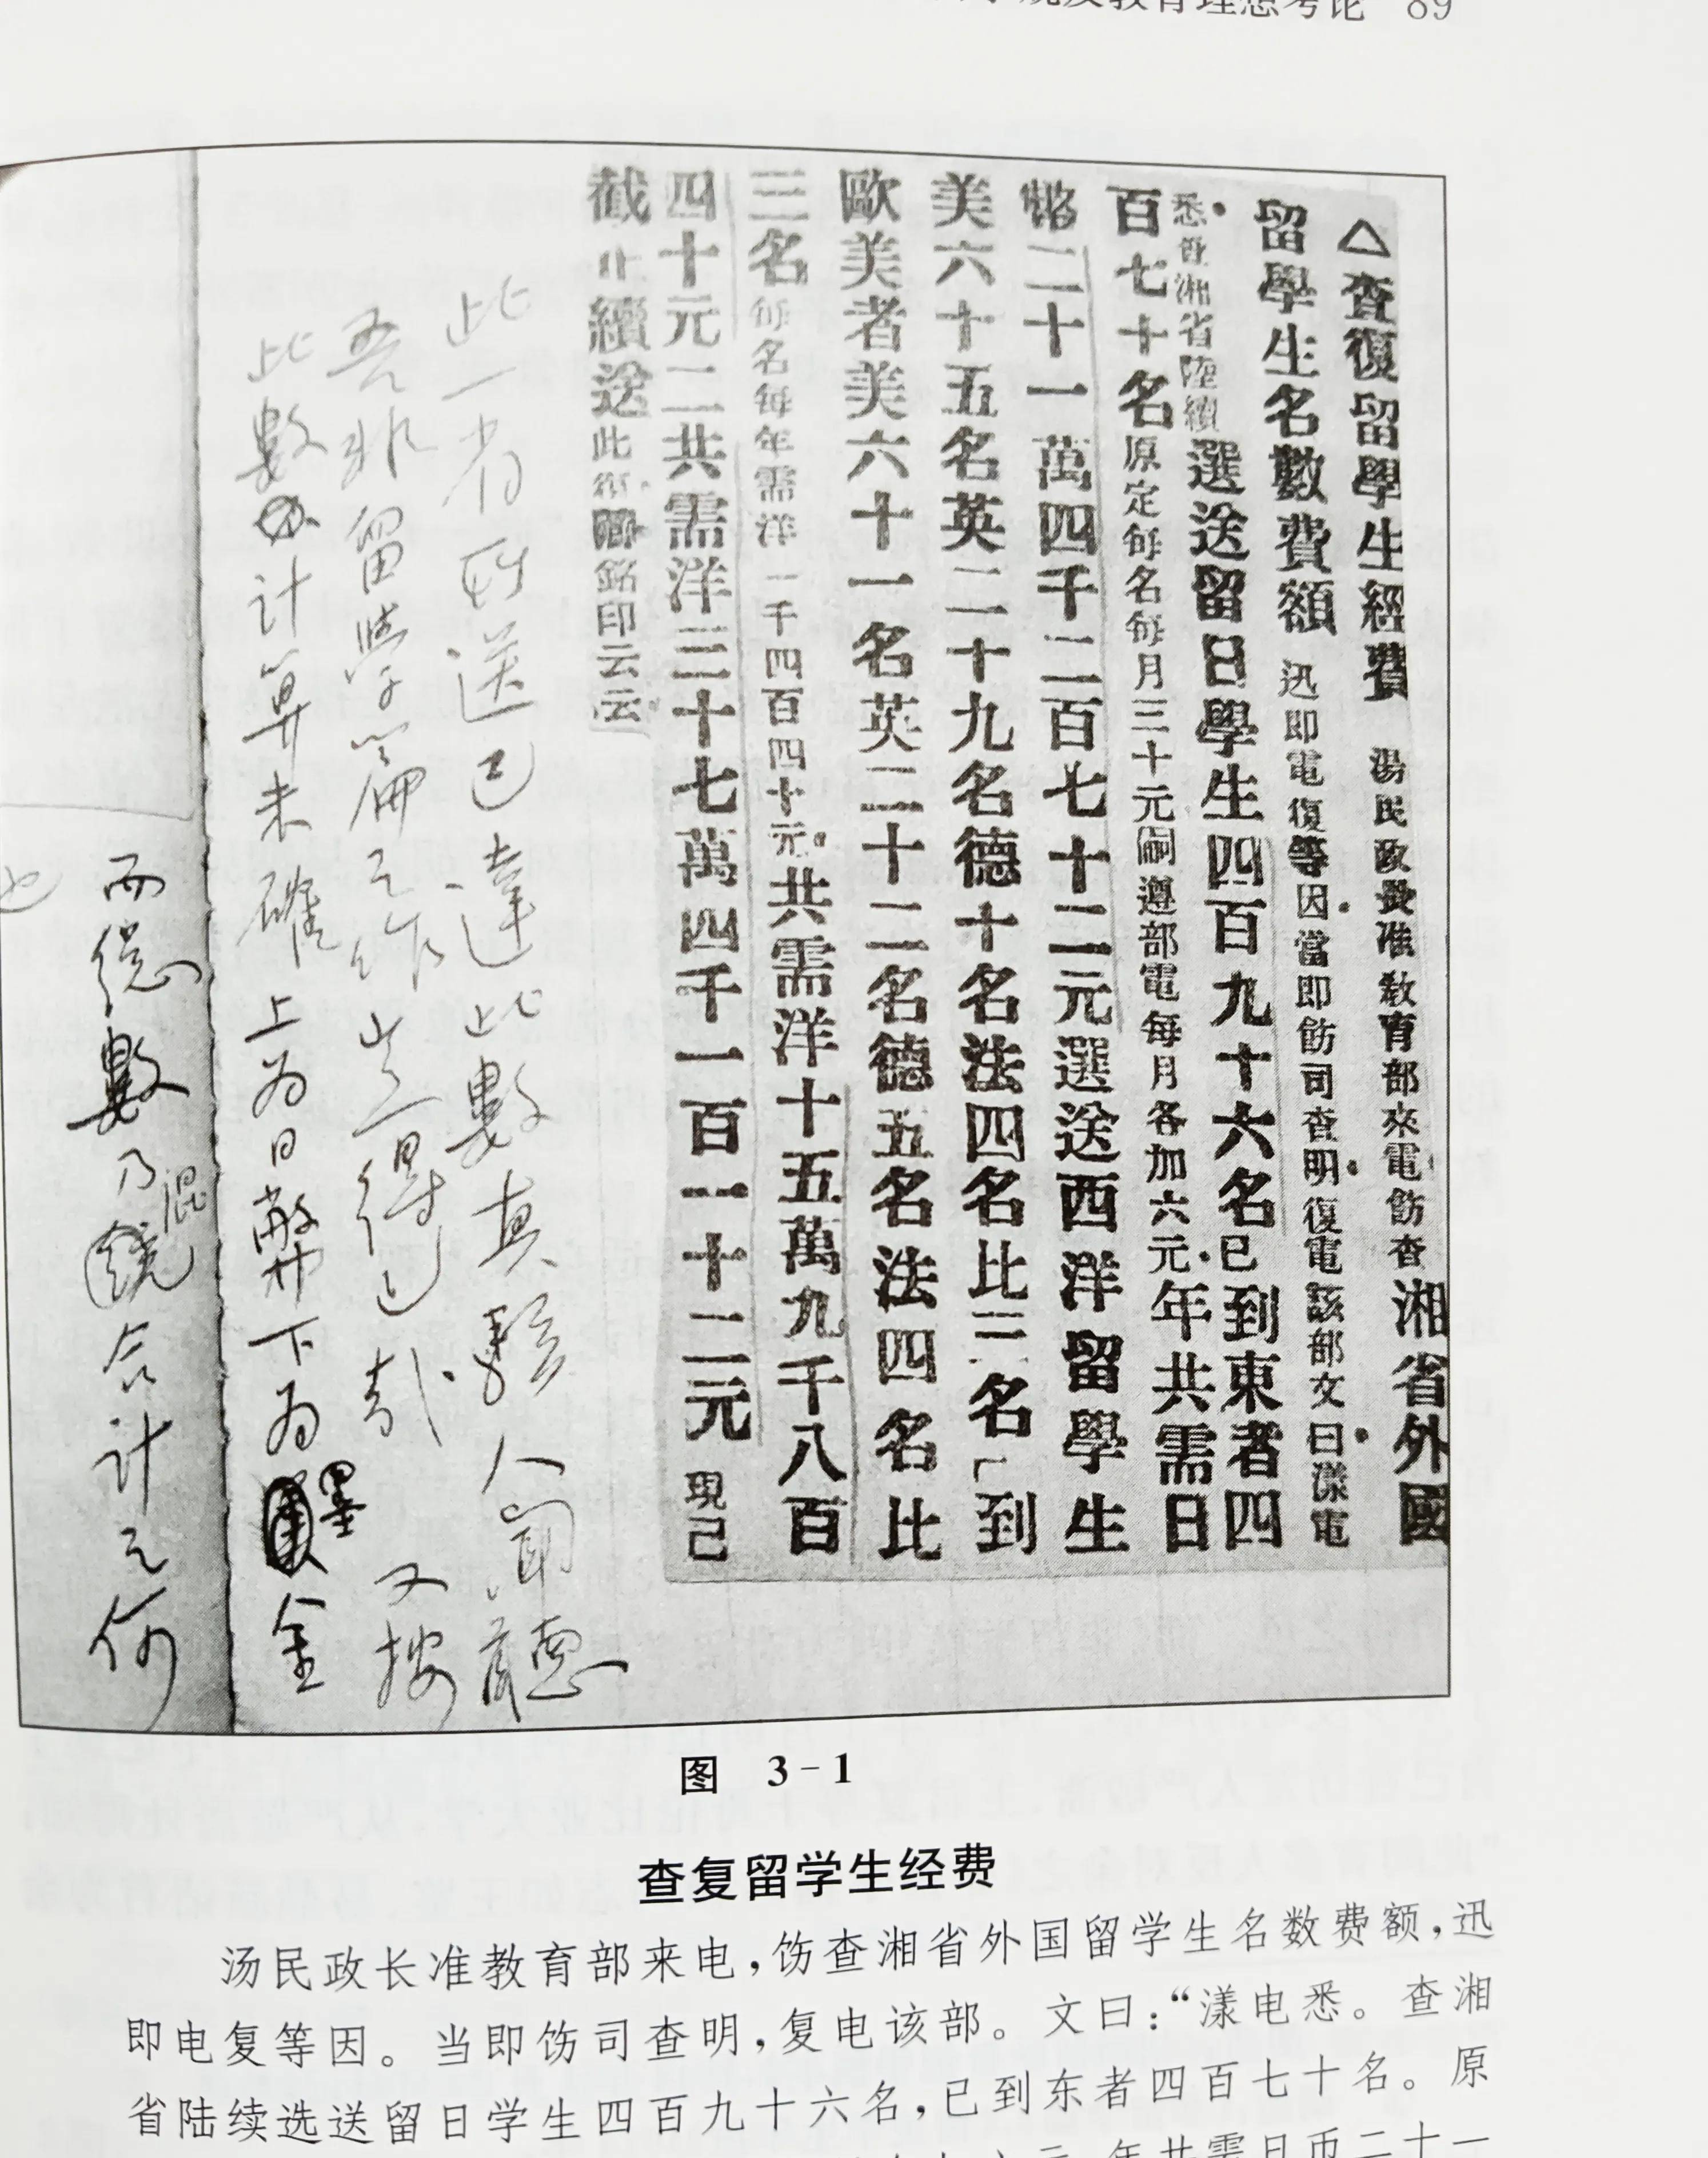 及教育理想考论 89
△查復留學生經費 湯民政長准教育部來電飭查湘省外國
留學生名數費額 迅即電復等因當即飭司查明復電該部文曰漾電
悉查湘省陸續選送留日學生四百九十六名已到東者四
百七十名原定每名每月三十元嗣遵部電每月各加六元年共需日
幣二十一萬四千二百七十二元選送西洋留學生
美六十五名英二十九名德十名法四名比三名到
歐美者美六十一名英二十二名德五名法四名比
三名每名每年需洋一千四百四十元共需洋十五萬九千八百
四十元二共需洋三十七萬四千一百一十二元現已
截止續送此復銘印云云
此一省所送已達此數真駭人聞聽
吾非留學篇之作豈得已哉 又按
此數計算未確上為日幣下為墨金
而總數乃混合計之何
也
图 3-1
查复留学生经费
汤民政长准教育部来电，饬查湘省外国留学生名数费额，迅
即电复等因。当即饬司查明，复电该部。文曰：“漾电悉。查湘
省陆续选送留日学生四百九十六名，已到东者四百七十名。原
年共需日币二十一